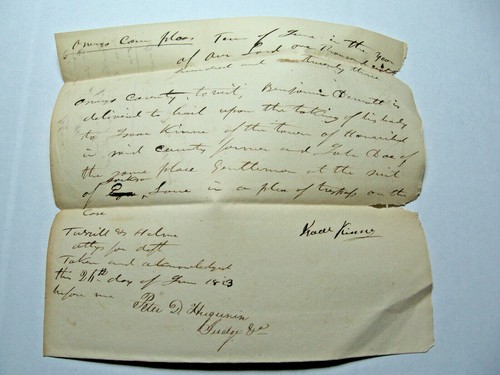 Oswego Com pleas Term of June in the year
of our Lord one thousand eight
hundred and twenty three
Oswego County, to wit, Benjamin is
delivered to bail upon the taking of his body
to Isaac Kinne of the town of Hannibal
in said county farmer and John Doe of
the same place Gentleman at the suit
of Jackson Lane in a plea of trespass on the
Case
Turrill & Helme
attys for deft
Isaac Kinne
Taken and acknowledged
this 26th day of June 1823
before me
Peter D Hugunin
Judge &c